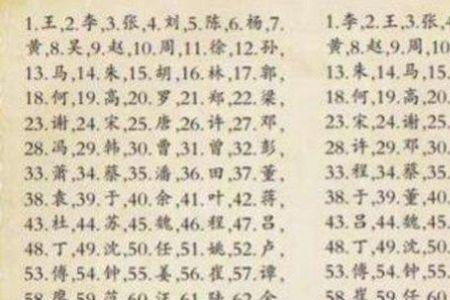 1.王,2.李,3.张,4.刘,5.陈,6.杨,7.
黄,8.吴,9.赵,10.周,11.徐,12.孙,
13.马,14.朱,15.胡,16.林,17.郭,
18.何,19.高,20.罗,21.郑,22.梁,
23.谢,24.宋,25.唐,26.许,27.邓,
28.冯,29.韩,30.曹,31.曾,32.彭,
33.萧,34.蔡,35.潘,36.田,37.董,
38.袁,39.于,40.余,41.叶,42.蒋,
43.杜,44.苏,45.魏,46.程,47.吕,
48.丁,49.沈,50.任,51.姚,52.卢,
53.傅,54.钟,55.姜,56.崔,57.谭,
58.廖,59.范,60.汪,61.陆,62.金,
1.李,2.王,3.张,4
黄,8.周,9.吴,10.
13.朱,14.马,15.
18.何,19.高,20.
23.宋,24.谢,25.
28.许,29.邓,30.
33.程,34.蔡,35.
38.董,39.于,40.
43.吕,44.魏,45.
48.丁,49.任,50.
53.傅,54.钟,55
58.崔,59.任,60